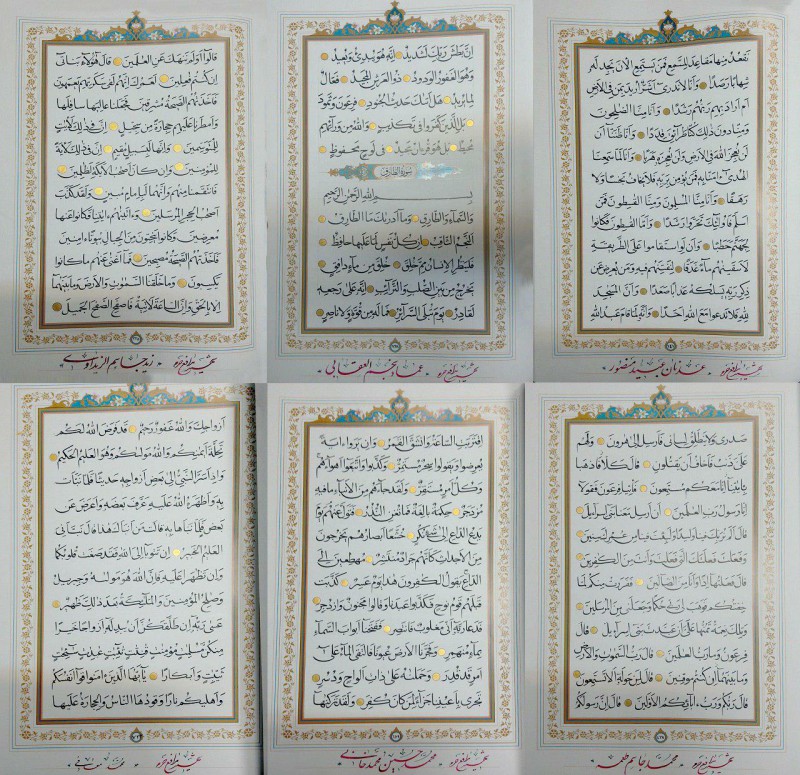 نقعد منها مقاعد للسمع فمن يستمع الآن يجد له
شهابا رصدا وأنا لا ندري أشر أريد بمن في الأرض
أم أراد بهم ربهم رشدا وأنا منا الصالحون
ومنا دون ذلك كنا طرائق قددا وأنا ظننا أن
لن نعجز الله في الأرض ولن نعجزه هربا وأنا لما سمعنا
الهدى آمنا به فمن يؤمن بربه فلا يخاف بخسا ولا
رهقا وأنا منا المسلمون ومنا القاسطون فمن
أسلم فأولئك تحروا رشدا وأما القاسطون فكانوا
لجهنم حطبا وأن لو استقاموا على الطريقة
لأسقيناهم ماء غدقا لنفتنهم فيه ومن يعرض عن
ذكر ربه يسلكه عذابا صعدا وأن المساجد
لله فلا تدعوا مع الله أحدا وأنه لما قام عبد الله
عدنان مجيد منصور
إن بطش ربك لشديد إنه هو يبدئ ويعيد
وهو الغفور الودود ذو العرش المجيد فعال
لما يريد هل أتاك حديث الجنود فرعون وثمود
بل الذين كفروا في تكذيب والله من ورائهم
محيط بل هو قرآن مجيد في لوح محفوظ
سورة الطارق
بسم الله الرحمن الرحيم
والسماء والطارق وما أدراك ما الطارق
النجم الثاقب إن كل نفس لما عليها حافظ
فلينظر الإنسان مم خلق خلق من ماء دافق
يخرج من بين الصلب والترائب إنه على رجعه
لقادر يوم تبلى السرائر فما له من قوة ولا ناصر
عماد نجم العقابي
قالوا أولم ننهك عن العالمين قال هؤلاء بناتي
إن كنتم فاعلين لعمرك إنهم لفي سكرتهم يعمهون
فأخذتهم الصيحة مشرقين فجعلنا عاليها سافلها
وأمطرنا عليهم حجارة من سجيل إن في ذلك لآيات
للمتوسمين وإنها لبسبيل مقيم إن في ذلك لآية
للمؤمنين وإن كان أصحاب الأيكة لظالمين
فانتقمنا منهم وإنهما لبإمام مبين ولقد كذب
أصحاب الحجر المرسلين وآتيناهم آياتنا فكانوا عنها
معرضين وكانوا ينحتون من الجبال بيوتا آمنين
فأخذتهم الصيحة مصبحين فما أغنى عنهم ما كانوا
يكسبون وما خلقنا السماوات والأرض وما بينهما
إلا بالحق وإن الساعة لآتية فاصفح الصفح الجميل
زيد جاسم الزيداوي
صدري ولا ينطلق لساني فأرسل إلى هارون ولهم
علي ذنب فأخاف أن يقتلون قال كلا فاذهبا
بآياتنا إنا معكم مستمعون فأتيا فرعون فقولا
إنا رسول رب العالمين أن أرسل معنا بني إسرائيل
قال ألم نربك فينا وليدا ولبثت فينا من عمرك سنين
وفعلت فعلتك التي فعلت وأنت من الكافرين
قال فعلتها إذا وأنا من الضالين ففررت منكم لما
خفتكم فوهب لي ربي حكما وجعلني من المرسلين
وتلك نعمة تمنها علي أن عبدت بني إسرائيل قال
فرعون وما رب العالمين قال رب السماوات والأرض
وما بينهما إن كنتم موقنين قال لمن حوله ألا تستمعون
قال ربكم ورب آبائكم الأولين قال إن رسولكم
محمد جاسم طعمة
اقتربت الساعة وانشق القمر وإن يروا آية
يعرضوا ويقولوا سحر مستمر وكذبوا واتبعوا أهواءهم
وكل أمر مستقر ولقد جاءهم من الأنباء ما فيه
مزدجر حكمة بالغة فما تغن النذر فتول عنهم يوم
يدع الداع إلى شيء نكر خشعا أبصارهم يخرجون
من الأجداث كأنهم جراد منتشر مهطعين إلى
الداع يقول الكافرون هذا يوم عسر كذبت
قبلهم قوم نوح فكذبوا عبدنا وقالوا مجنون وازدجر
فدعا ربه أني مغلوب فانتصر ففتحنا أبواب السماء
بماء منهمر وفجرنا الأرض عيونا فالتقى الماء على
أمر قد قدر وحملناه على ذات ألواح ودسر
تجري بأعيننا جزاء لمن كان كفر ولقد تركناها
أزواجك والله غفور رحيم قد فرض الله لكم
تحلة أيمانكم والله مولاكم وهو العليم الحكيم
وإذ أسر النبي إلى بعض أزواجه حديثا فلما نبأت
به وأظهره الله عليه عرف بعضه وأعرض عن
بعض فلما نبأها به قالت من أنبأك هذا قال نبأني
العليم الخبير إن تتوبا إلى الله فقد صغت قلوبكما
وإن تظاهرا عليه فإن الله هو مولاه وجبريل
وصالح المؤمنين والملائكة بعد ذلك ظهير
عسى ربه إن طلقكن أن يبدله أزواجا خيرا
منكن مسلمات مؤمنات قانتات تائبات عابدات سائحات
ثيبات وأبكارا يا أيها الذين آمنوا قوا أنفسكم
وأهليكم نارا وقودها الناس والحجارة عليها